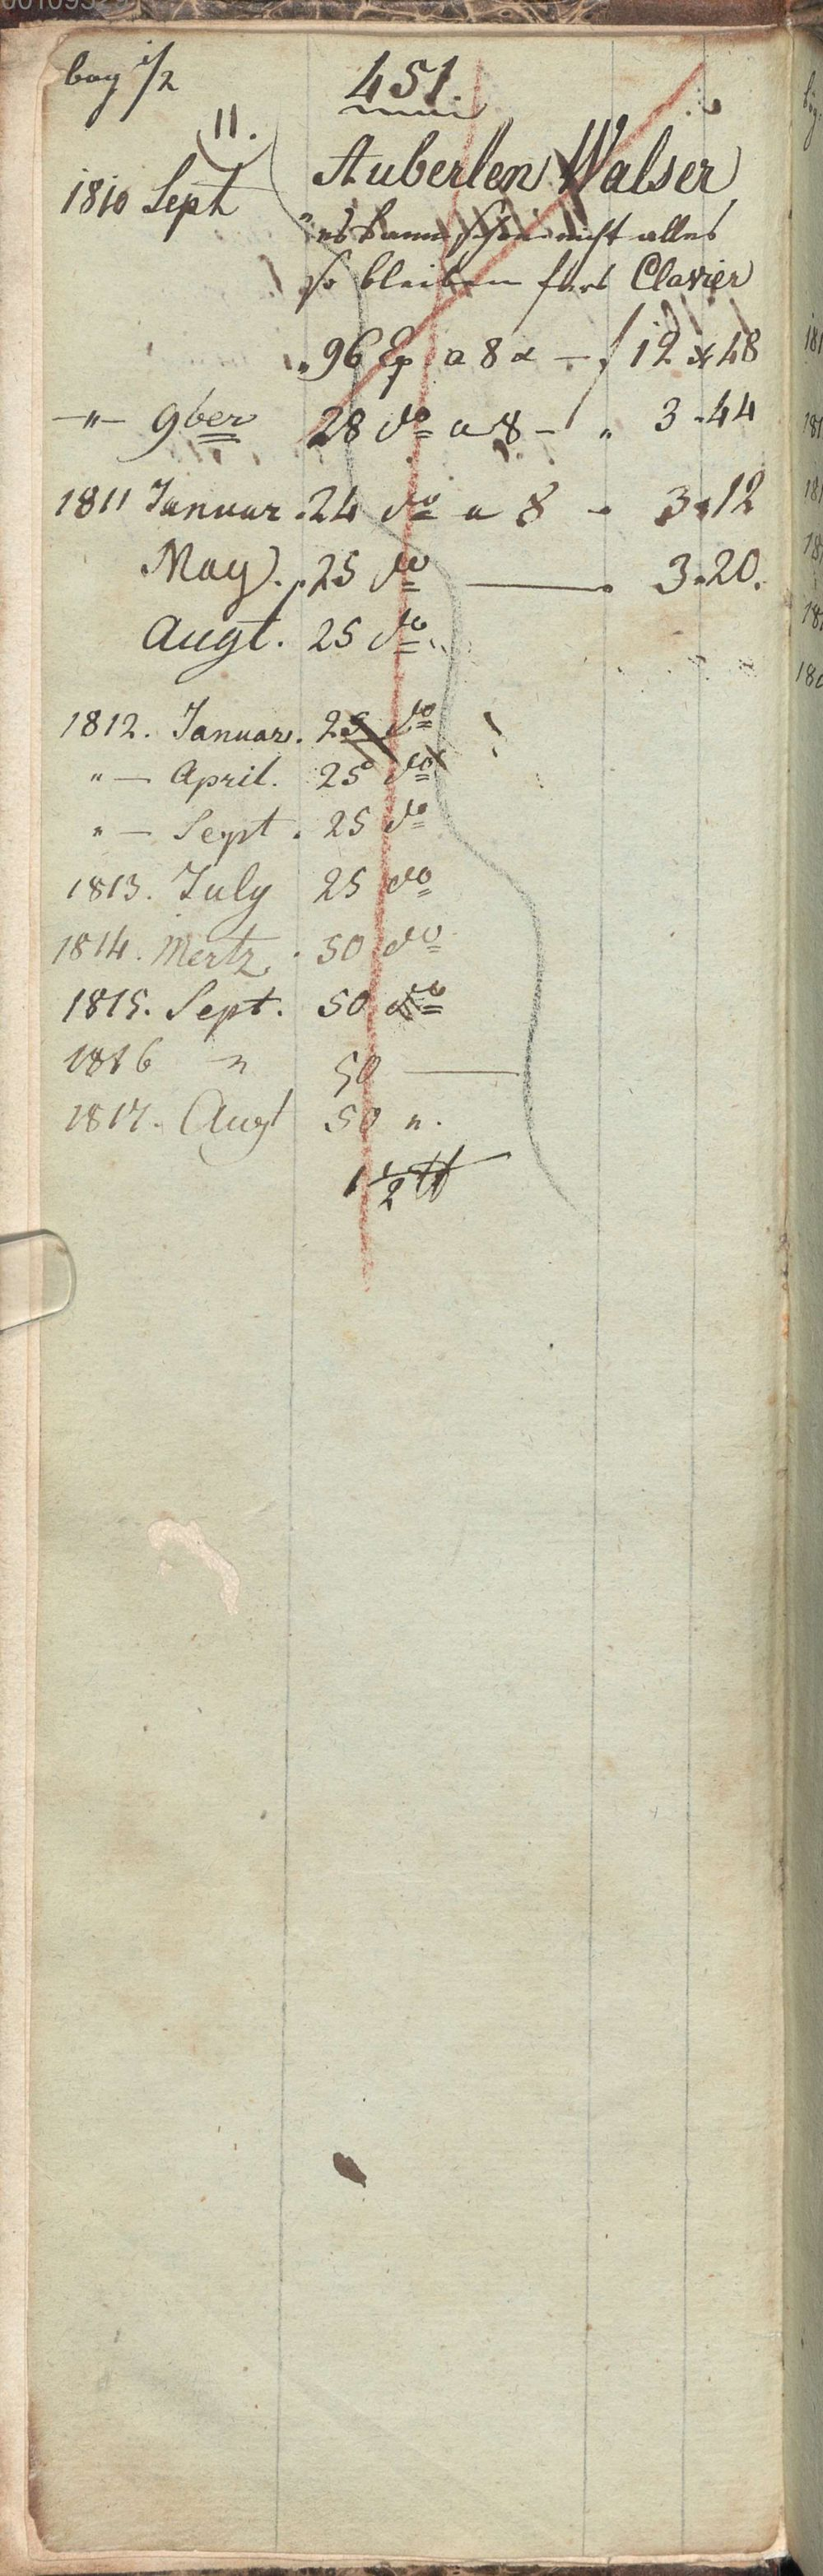 bog 1/2
451.
11.
1810 Sept Auberlen Walser
"es kann schon nicht alles
so bleiben fürs Clavier
" 96 Ex a 8 x — f 12 x 48
—"— 9ber 28 do a 8 — " 3 . 44
1811 Januar . 24 do a 8 — 3 . 12
May . 25 do — 3 . 20.
Augt. 25 do
1812. Januar. 25 do
" — April. 25 do
" — Sept. 25 do
1813. July 25 do
1814. Mertz . 50 do
1815. Sept. 50 do
1816 " 50 —
1817. Augt 50 ".
1 1/2 ℔